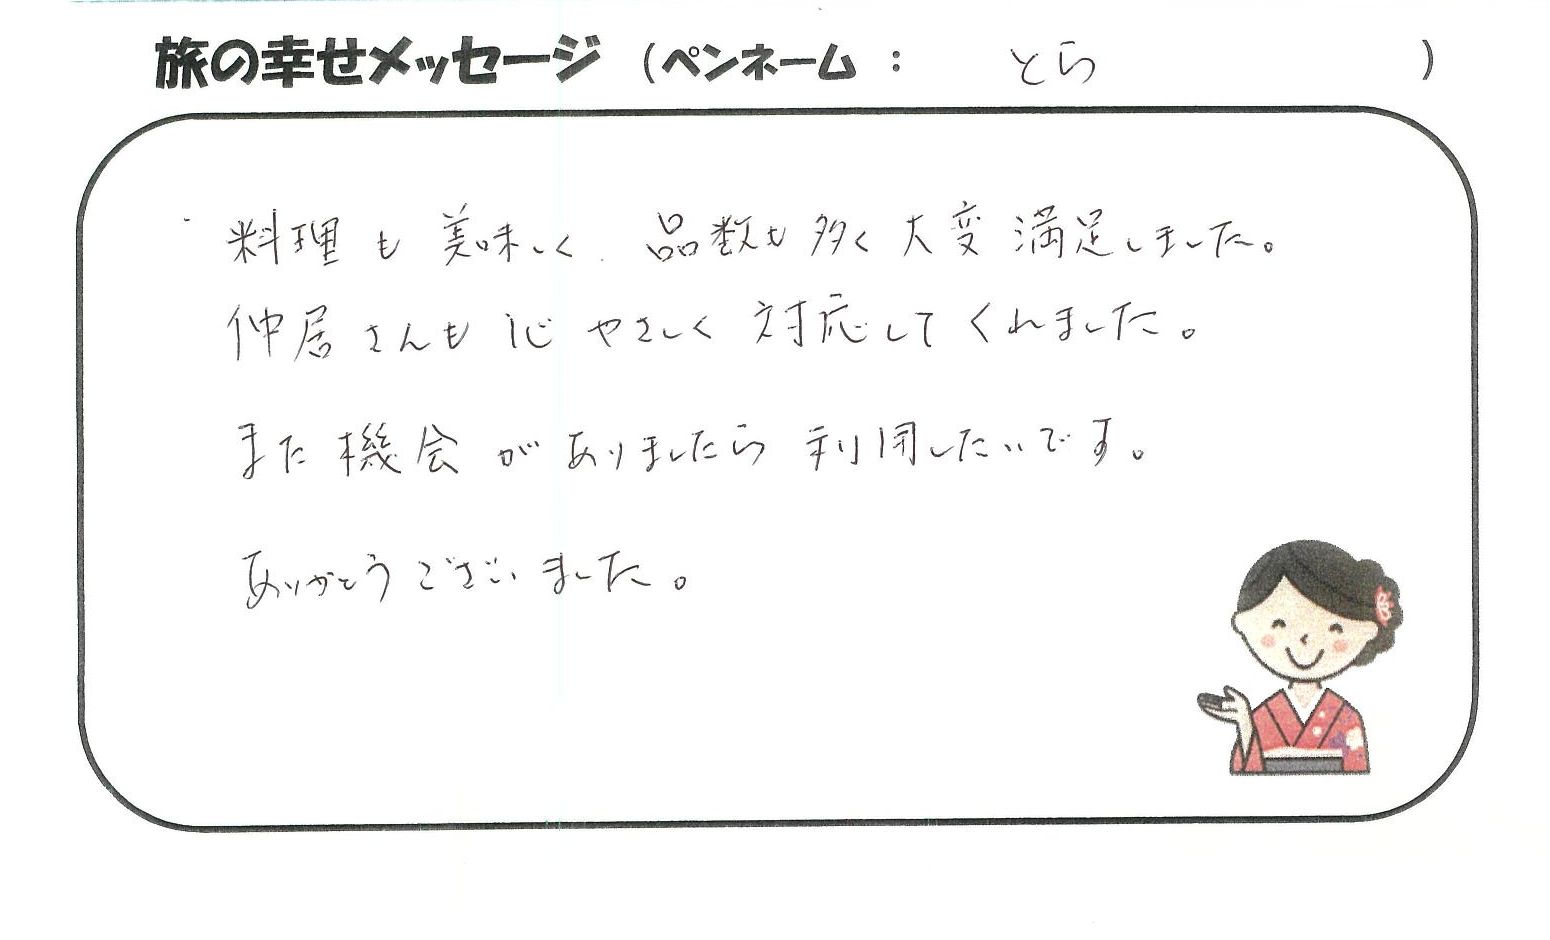 旅の幸せメッセージ (ペンネーム： とら )
料理も美味しく、品数も多く大変満足しました。
仲居さんも心やさしく対応してくれました。
また機会がありましたら利用したいです。
ありがとうございました。